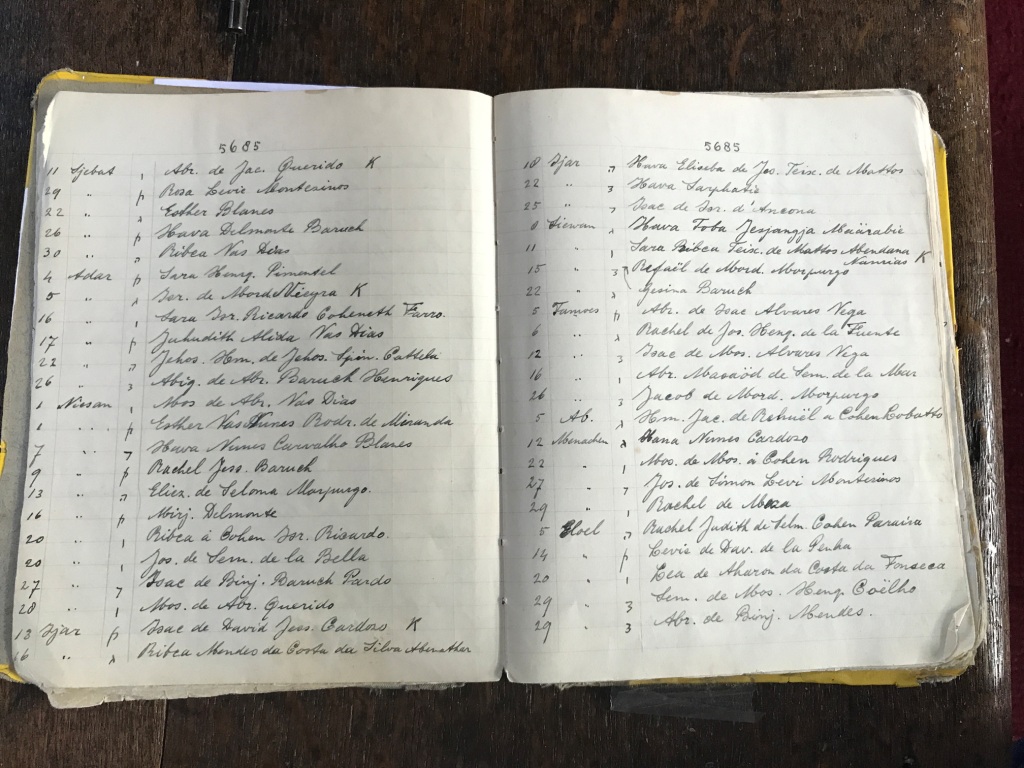 5685
11 Sjebat Abr. de Jac. Querido K
29 " Rosa Levie Montesinos
22 " Esther Blanes
26 " Hava Delmonte Baruch
30 " Ribca Vas Dias
4 Adar Sara Henq. Pimentel
5 " Isr. de Mord. Vieyra K
16 " Sara Isr. Ricardo Coheneth Farro.
17 " Juhudith Alida Vas Dias
22 " Jehos. Hm. de Jehos. Spin. Cattela
26 " Abig. de Abr. Baruch Henriques
1 Niesan Mos de Abr. Vas Dias
1 " Esther Vas Nunes Rodr. de Miranda
7 " Hava Nunes Carvalho Blanes
9 " Rachel Jess. Baruch
13 " Eliez. de Seloma Morpurgo.
16 " Mirj. Delmonte
20 " Ribca á Cohen Isr. Ricardo
20 " Jos. de Sem. de la Bella
27 " Isac de Binj. Baruch Pardo
28 " Mos. de Abr. Querido
13 Ijar Isac de David Jess. Cardozo K
16 " Ribca Mendes da Costa da Silva Abenathar
5685
18 Ijar Hava Eliseba de Jos. Teix. de Mattos
22 " Hava Sarphatie
25 " Isac de Isr. d'Ancona
Siewan Hava Toba Jesjangja Määrabie
11 " Sara Ribca Teix. de Mattos Abendana K
Nunrias
15 " Refaël de Mord. Morpurgo
22 " Gesina Baruch
5 Tamoes Abr. de Isac Alvares Vega
6 " Rachel de Jos. Henq. de la Fuente
12 " Isac de Mos. Alvares Vega
16 " Abr. Masaöd de Sem. de la Mar
26 " Jacob de Mord. Morpurgo
5 Ab. Hm. Jac. de Rehuël a Cohen Lobatto
12 Menachem Hana Nunes Cardozo
22 Mos. de Mos. á Cohen Rodrigues
27 " Jos. de Simon Levi Montesinos
29 " Rachel de Meza
5 Eloel Rachel Judith de Selm. Cohen Paraira
14 " Levie de Dav. de la Penha
20 " Lea de Aharon da Costa da Fonseca
29 " Sem. de Mos. Henq. Coëlho
29 " Abr. de Binj. Mendes.